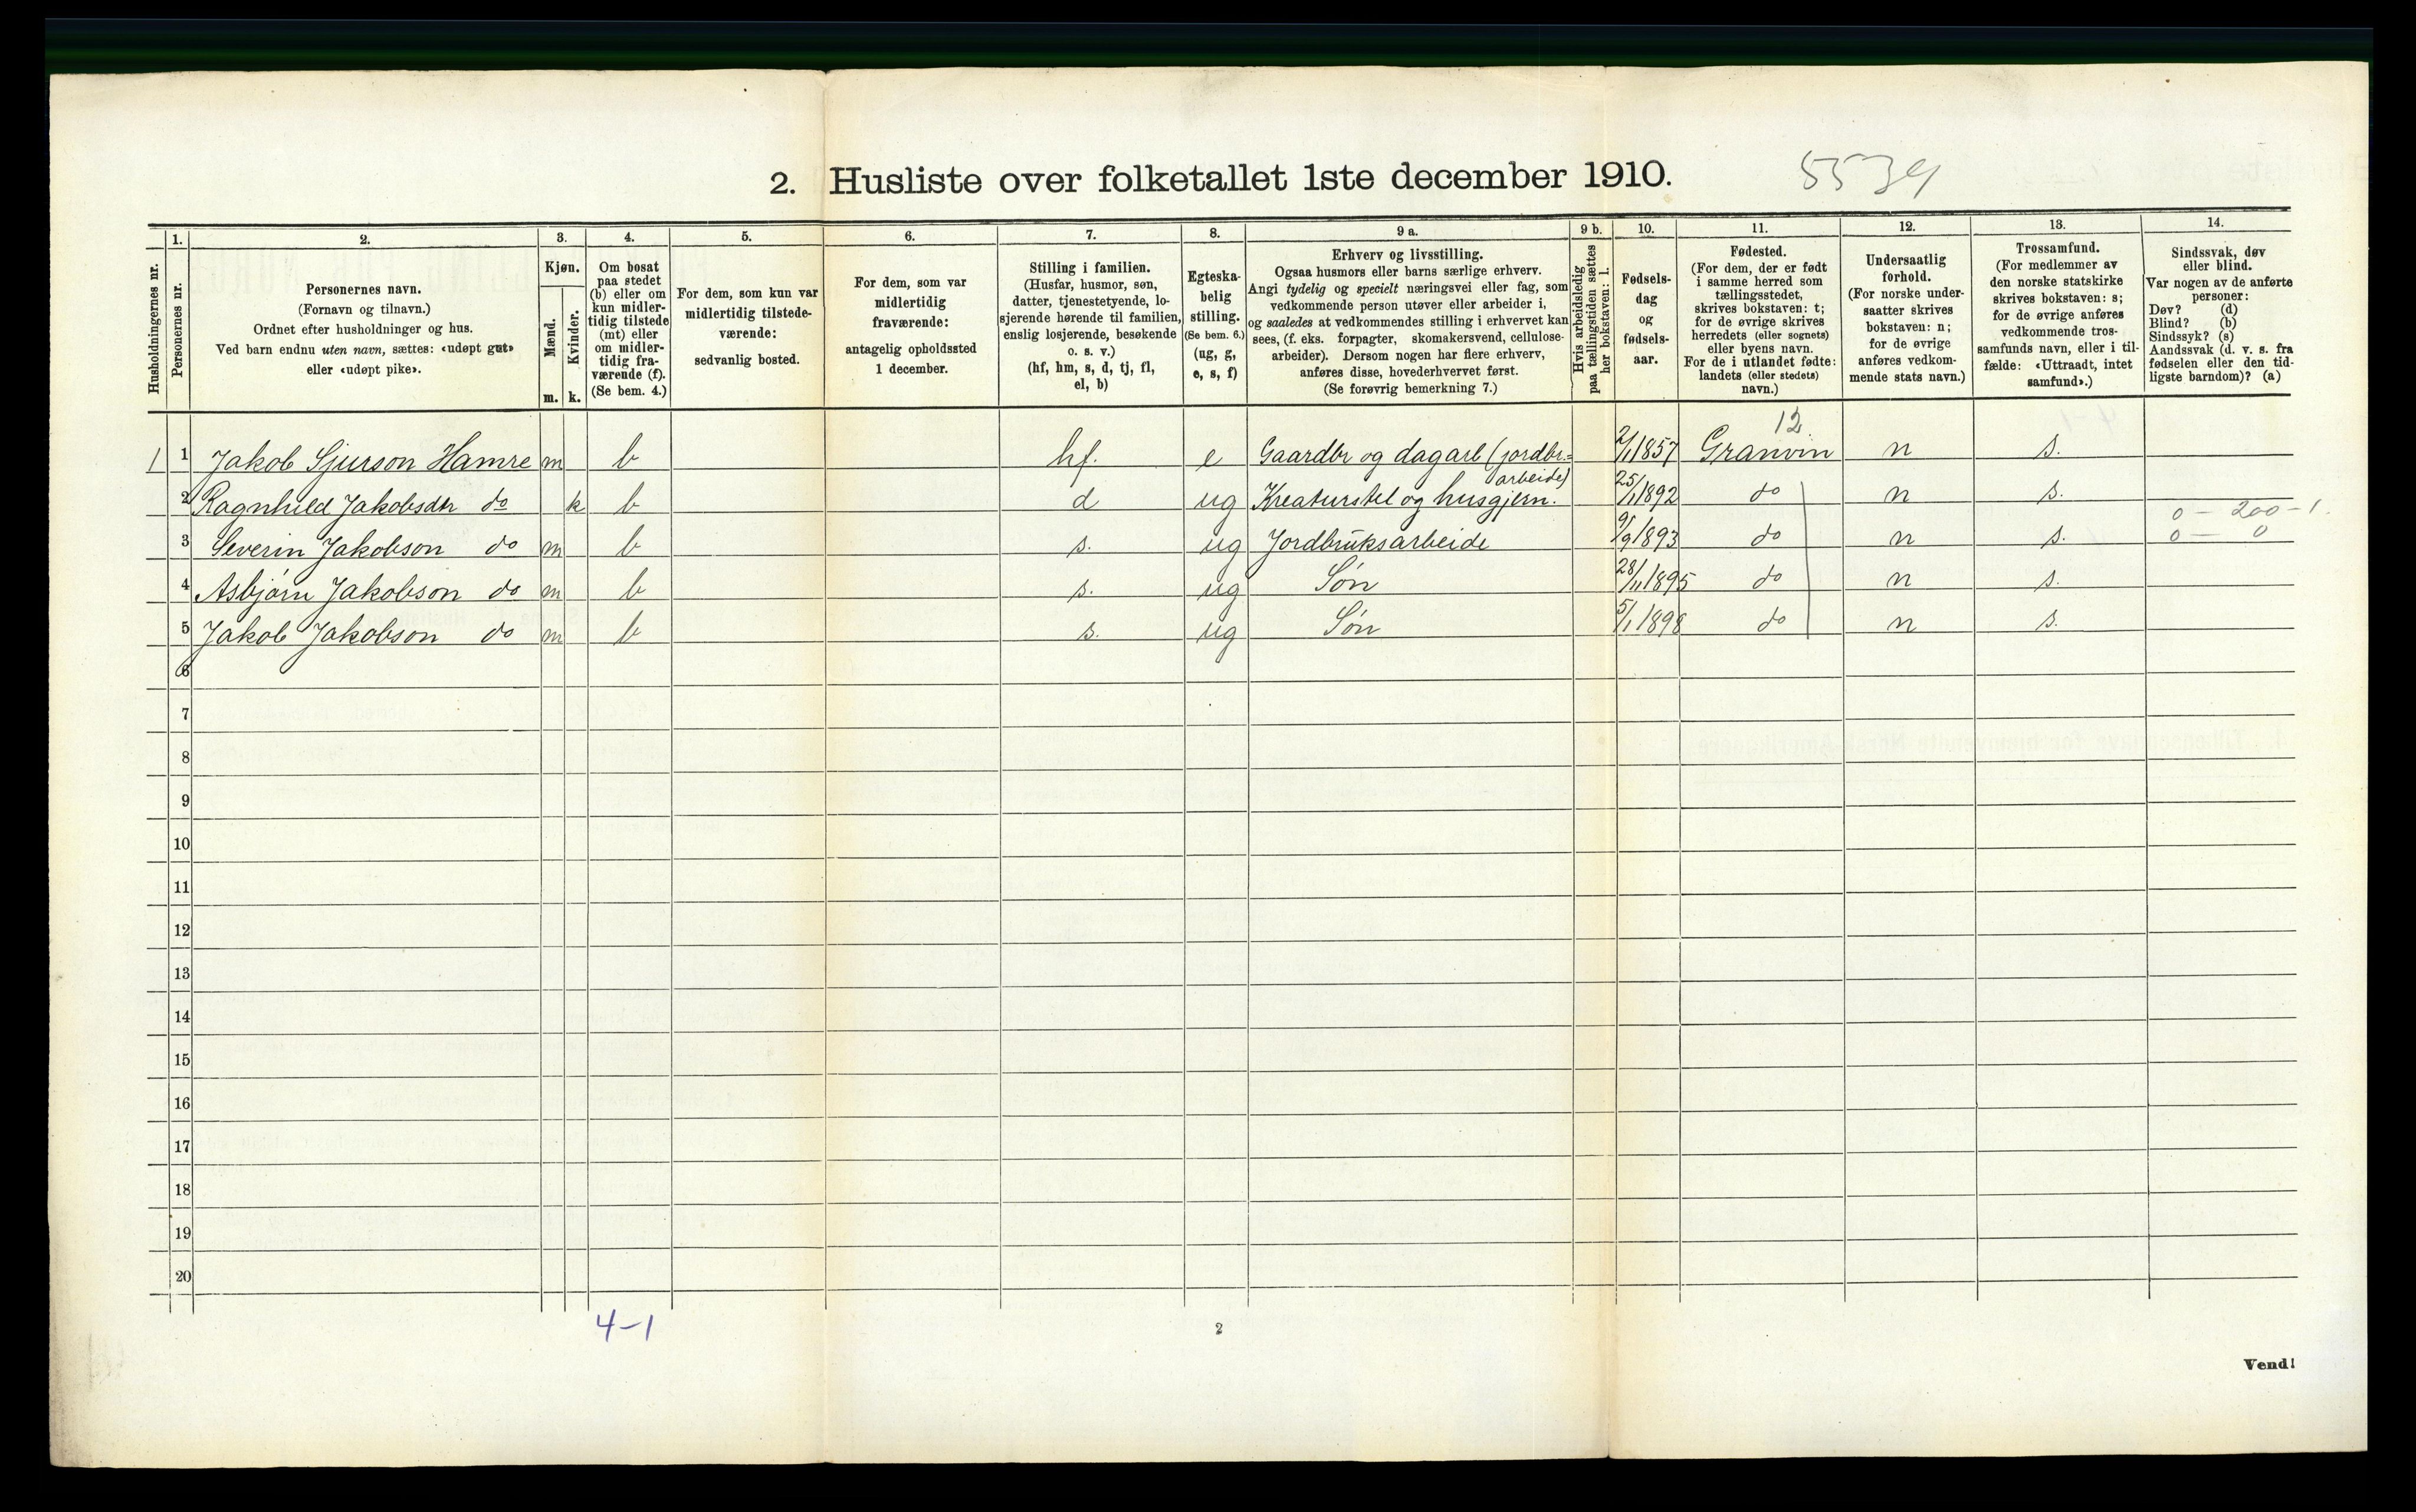 2. Husliste over folketallet 1ste december 1910. 5539
Husholdningernes nr.
1.
Personernes nr.
2.
Personernes navn.
(Fornavn og tilnavn.)
Ordnet efter husholdninger og hus.
Ved barn endnu uten navn, sættes: «udøpt gut»
eller «udøpt pike».
3.
Kjøn.
Mænd.
m.
Kvinder.
k.
4.
Om bosat
paa stedet
(b) eller om
kun midler-
tidig tilstede
(mt) eller
om midler-
tidig fra-
værende (f).
(Se bem. 4.)
5.
For dem, som kun var
midlertidig tilstede-
værende:
sedvanlig bosted.
6.
For dem, som var
midlertidig
fraværende:
antagelig opholdssted
1 december.
7.
Stilling i familien.
(Husfar, husmor, søn,
datter, tjenestetyende, lo-
sjerende hørende til familien,
enslig losjerende, besøkende
o. s. v.)
(hf, hm, s, d, tj, fl,
el, b)
8.
Egteska-
belig
stilling.
(Se bem. 6.)
(ug, g,
e, s, f)
9 a.
Erhverv og livsstilling.
Ogsaa husmors eller barns særlige erhverv.
Angi tydelig og specielt næringsvei eller fag, som
vedkommende person utøver eller arbeider i,
og saaledes at vedkommendes stilling i erhvervet kan
sees, (f. eks. forpagter, skomakersvend, cellulose-
arbeider). Dersom nogen har flere erhverv,
anføres disse, hovederhvervet først.
(Se forøvrig bemerkning 7.)
9 b.
Hvis arbeidsledig
paa tællingstiden sættes
her bokstaven: l.
10.
Fødsels-
dag
og
fødsels-
aar.
11.
Fødested.
(For dem, der er født
i samme herred som
tællingsstedet,
skrives bokstaven: t;
for de øvrige skrives
herredets (eller sognets)
eller byens navn.
For de i utlandet fødte:
landets (eller stedets)
navn.)
12.
Undersaatlig
forhold.
(For norske under-
saatter skrives
bokstaven: n;
for de øvrige
anføres vedkom-
mende stats navn.)
13.
Trossamfund.
(For medlemmer av
den norske statskirke
skrives bokstaven: s;
for de øvrige anføres
vedkommende tros-
samfunds navn, eller i til-
fælde: «Uttraadt, intet
samfund».)
14.
Sindssvak, døv
eller blind.
Var nogen av de anførte
personer:
Døv? (d)
Blind? (b)
Sindssyk? (s)
Aandssvak (d. v. s. fra
fødselen eller den tid-
ligste barndom)? (a)
12.
1 1 Jakob Sjurson Hamre m b hf. e Gaardbr og dagarb (jordbr.= 2/1 1857 Granvin n s.
arbeide)
2 Ragnhild Jakobsdtr do k b d ug Kreaturstel og husgjern. 25/1 1892 do n s.
0 - 200 - 1.
3 Severin Jakobson do m b s. ug Jordbruksarbeide 9/9 1893 do n s. 0 - 0
4 Asbjørn Jakobson do m b s. ug Søn 28/11 1895 do n s.
5 Jakob Jakobson do m b s. ug Søn 5/1 1898 do n s.
6
7
8
9
10
11
12
13
14
15
16
17
18
19
20
4-1
2
Vend!